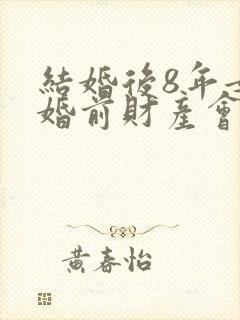 結婚後8年
婚前財產會
黃春怡